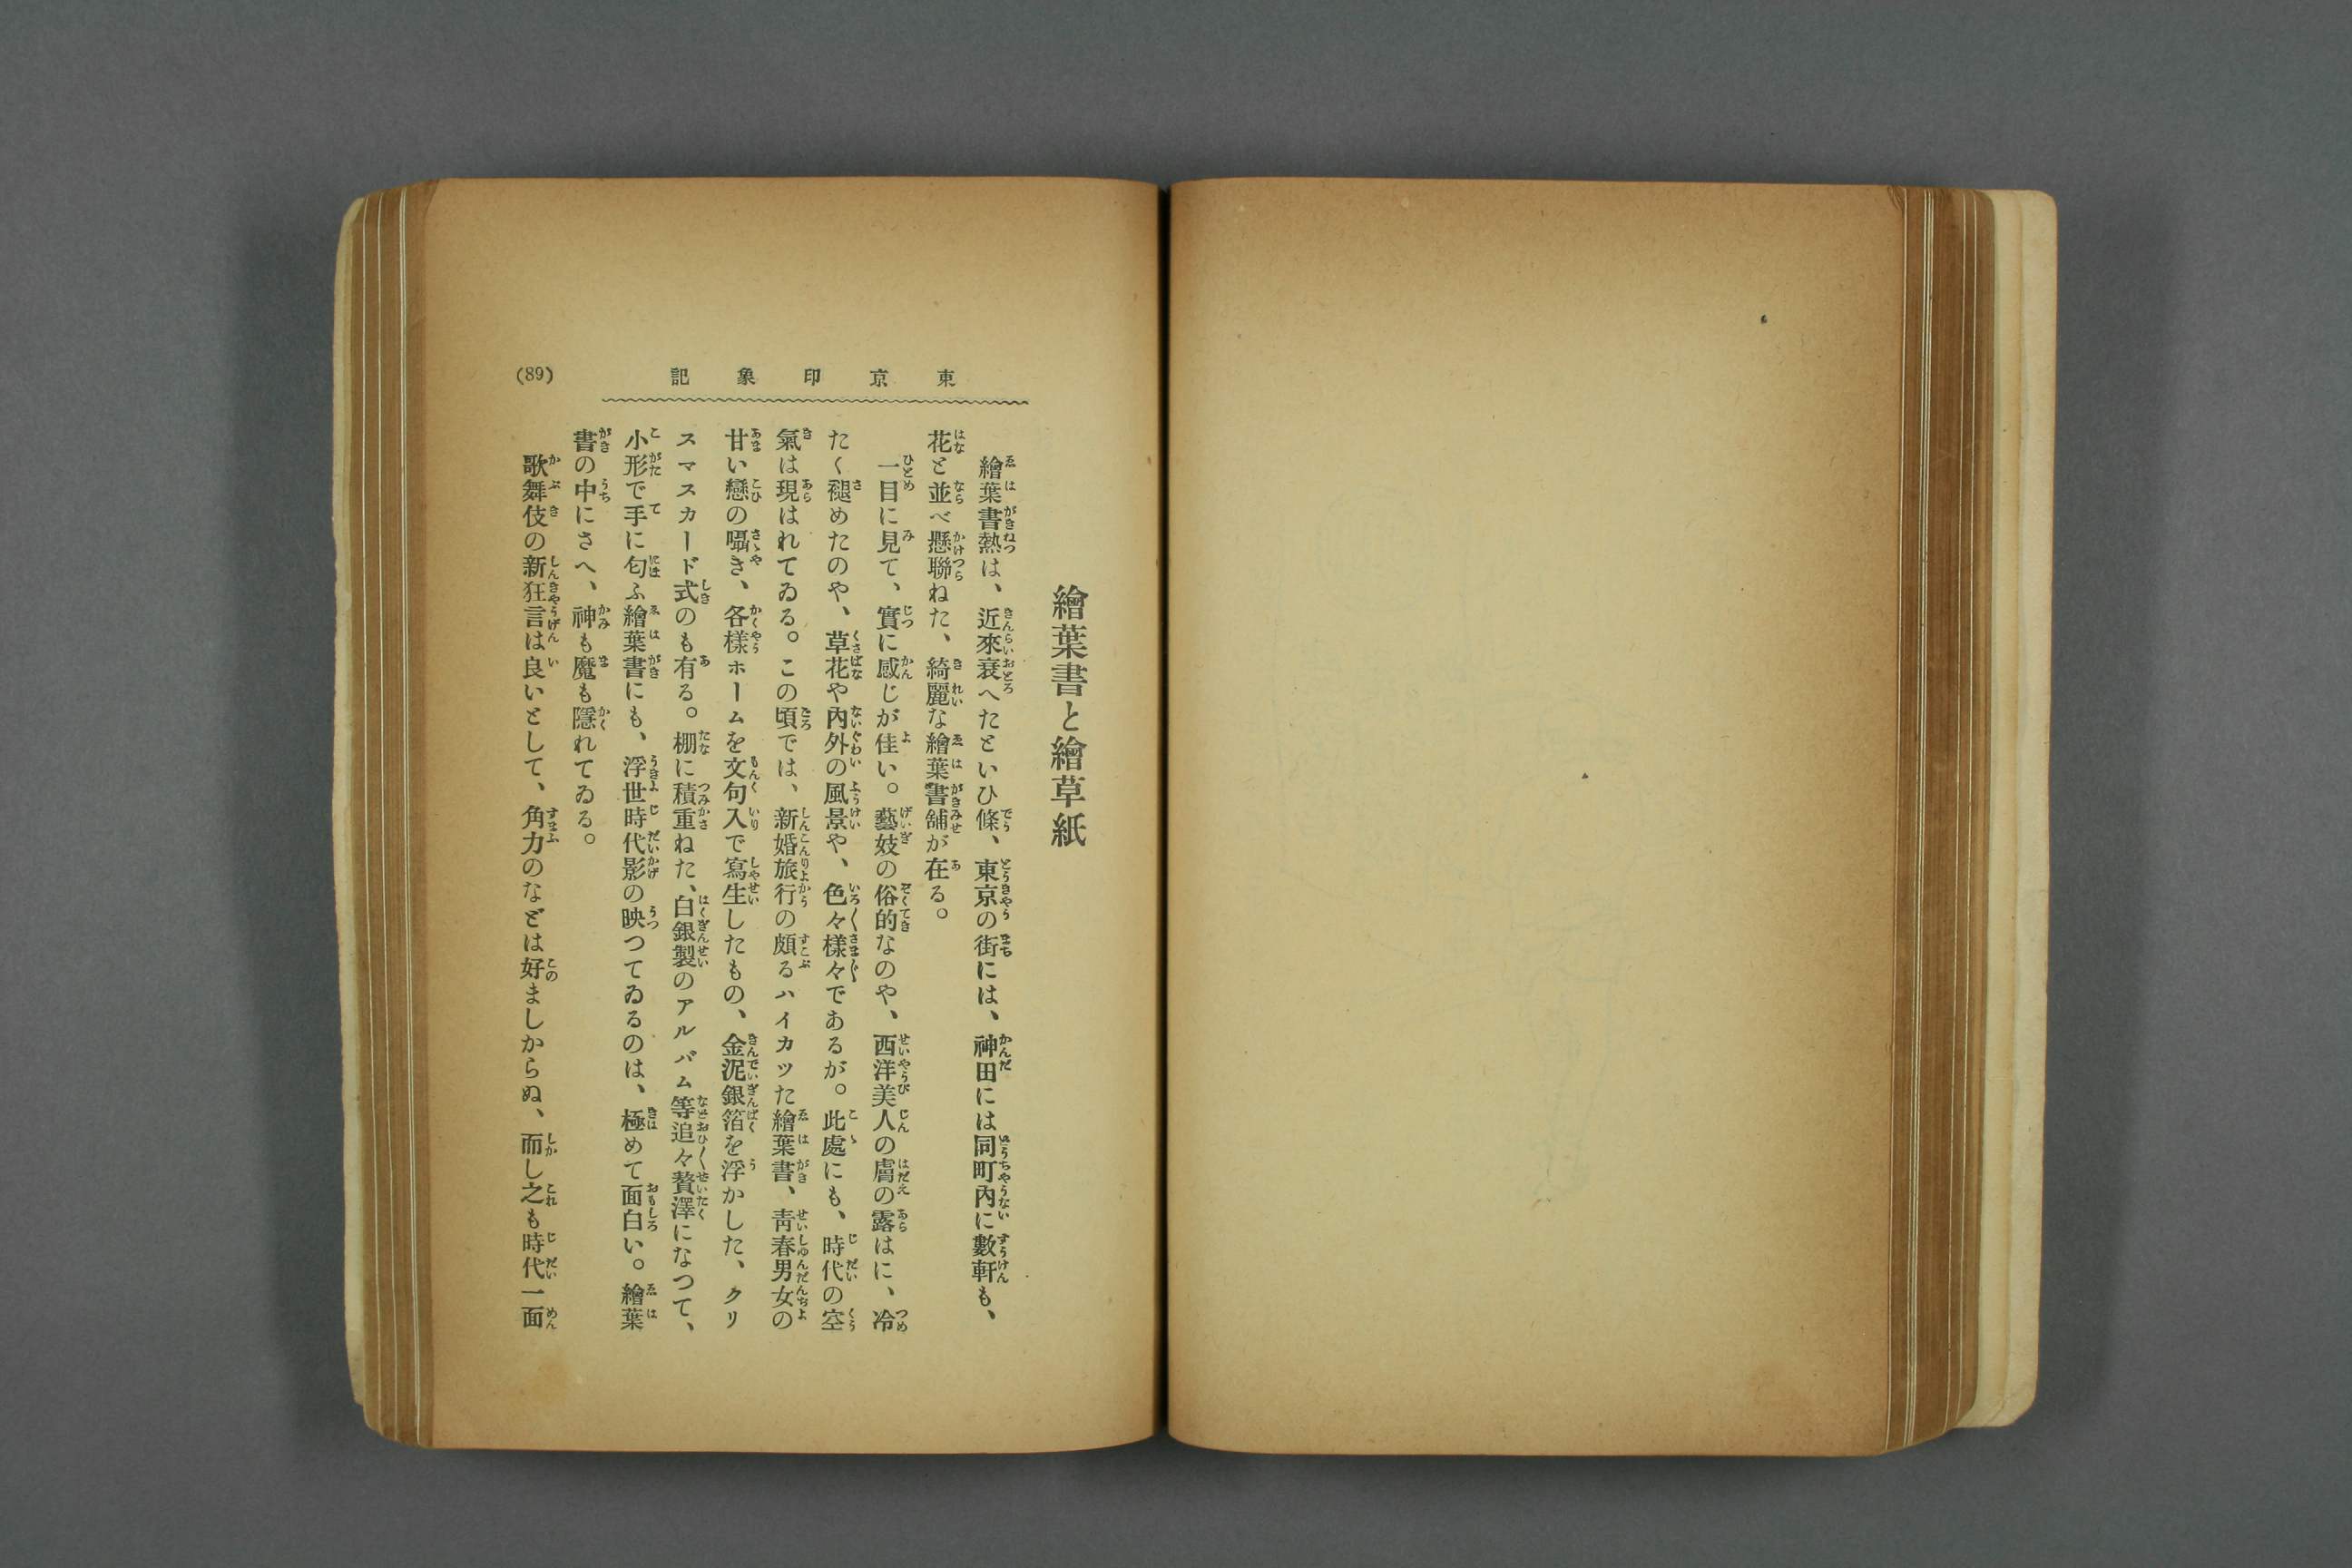 東京印象記
(89)
繪葉書と繪草紙
繪葉書熱は、近來衰へたといひ條、東京の街には、神田には同町內に數軒も、
花と並べ懸聯ねた、綺麗な繪葉書舖が在る。
一目に見て、實に感じが佳い。藝妓の俗的なのや、西洋美人の膚の露はに、冷
たく褪めたのや、草花や內外の風景や、色々樣々であるが。此處にも、時代の空
氣は現はれてゐる。この頃では、新婚旅行の頗るハイカツた繪葉書、靑春男女の
甘い戀の囁き、各樣ホームを文句入で寫生したもの、金泥銀箔を浮かした、クリ
スマスカード式のも有る。棚に積重ねた、白銀製のアルバム等追々贅澤になつて、
小形で手に匂ふ繪葉書にも、浮世時代影の映つてゐるのは、極めて面白い。繪葉
書の中にさへ、神も魔も隱れてゐる。
歌舞伎の新狂言は良いとして、角力のなどは好ましからぬ、而し之も時代一面